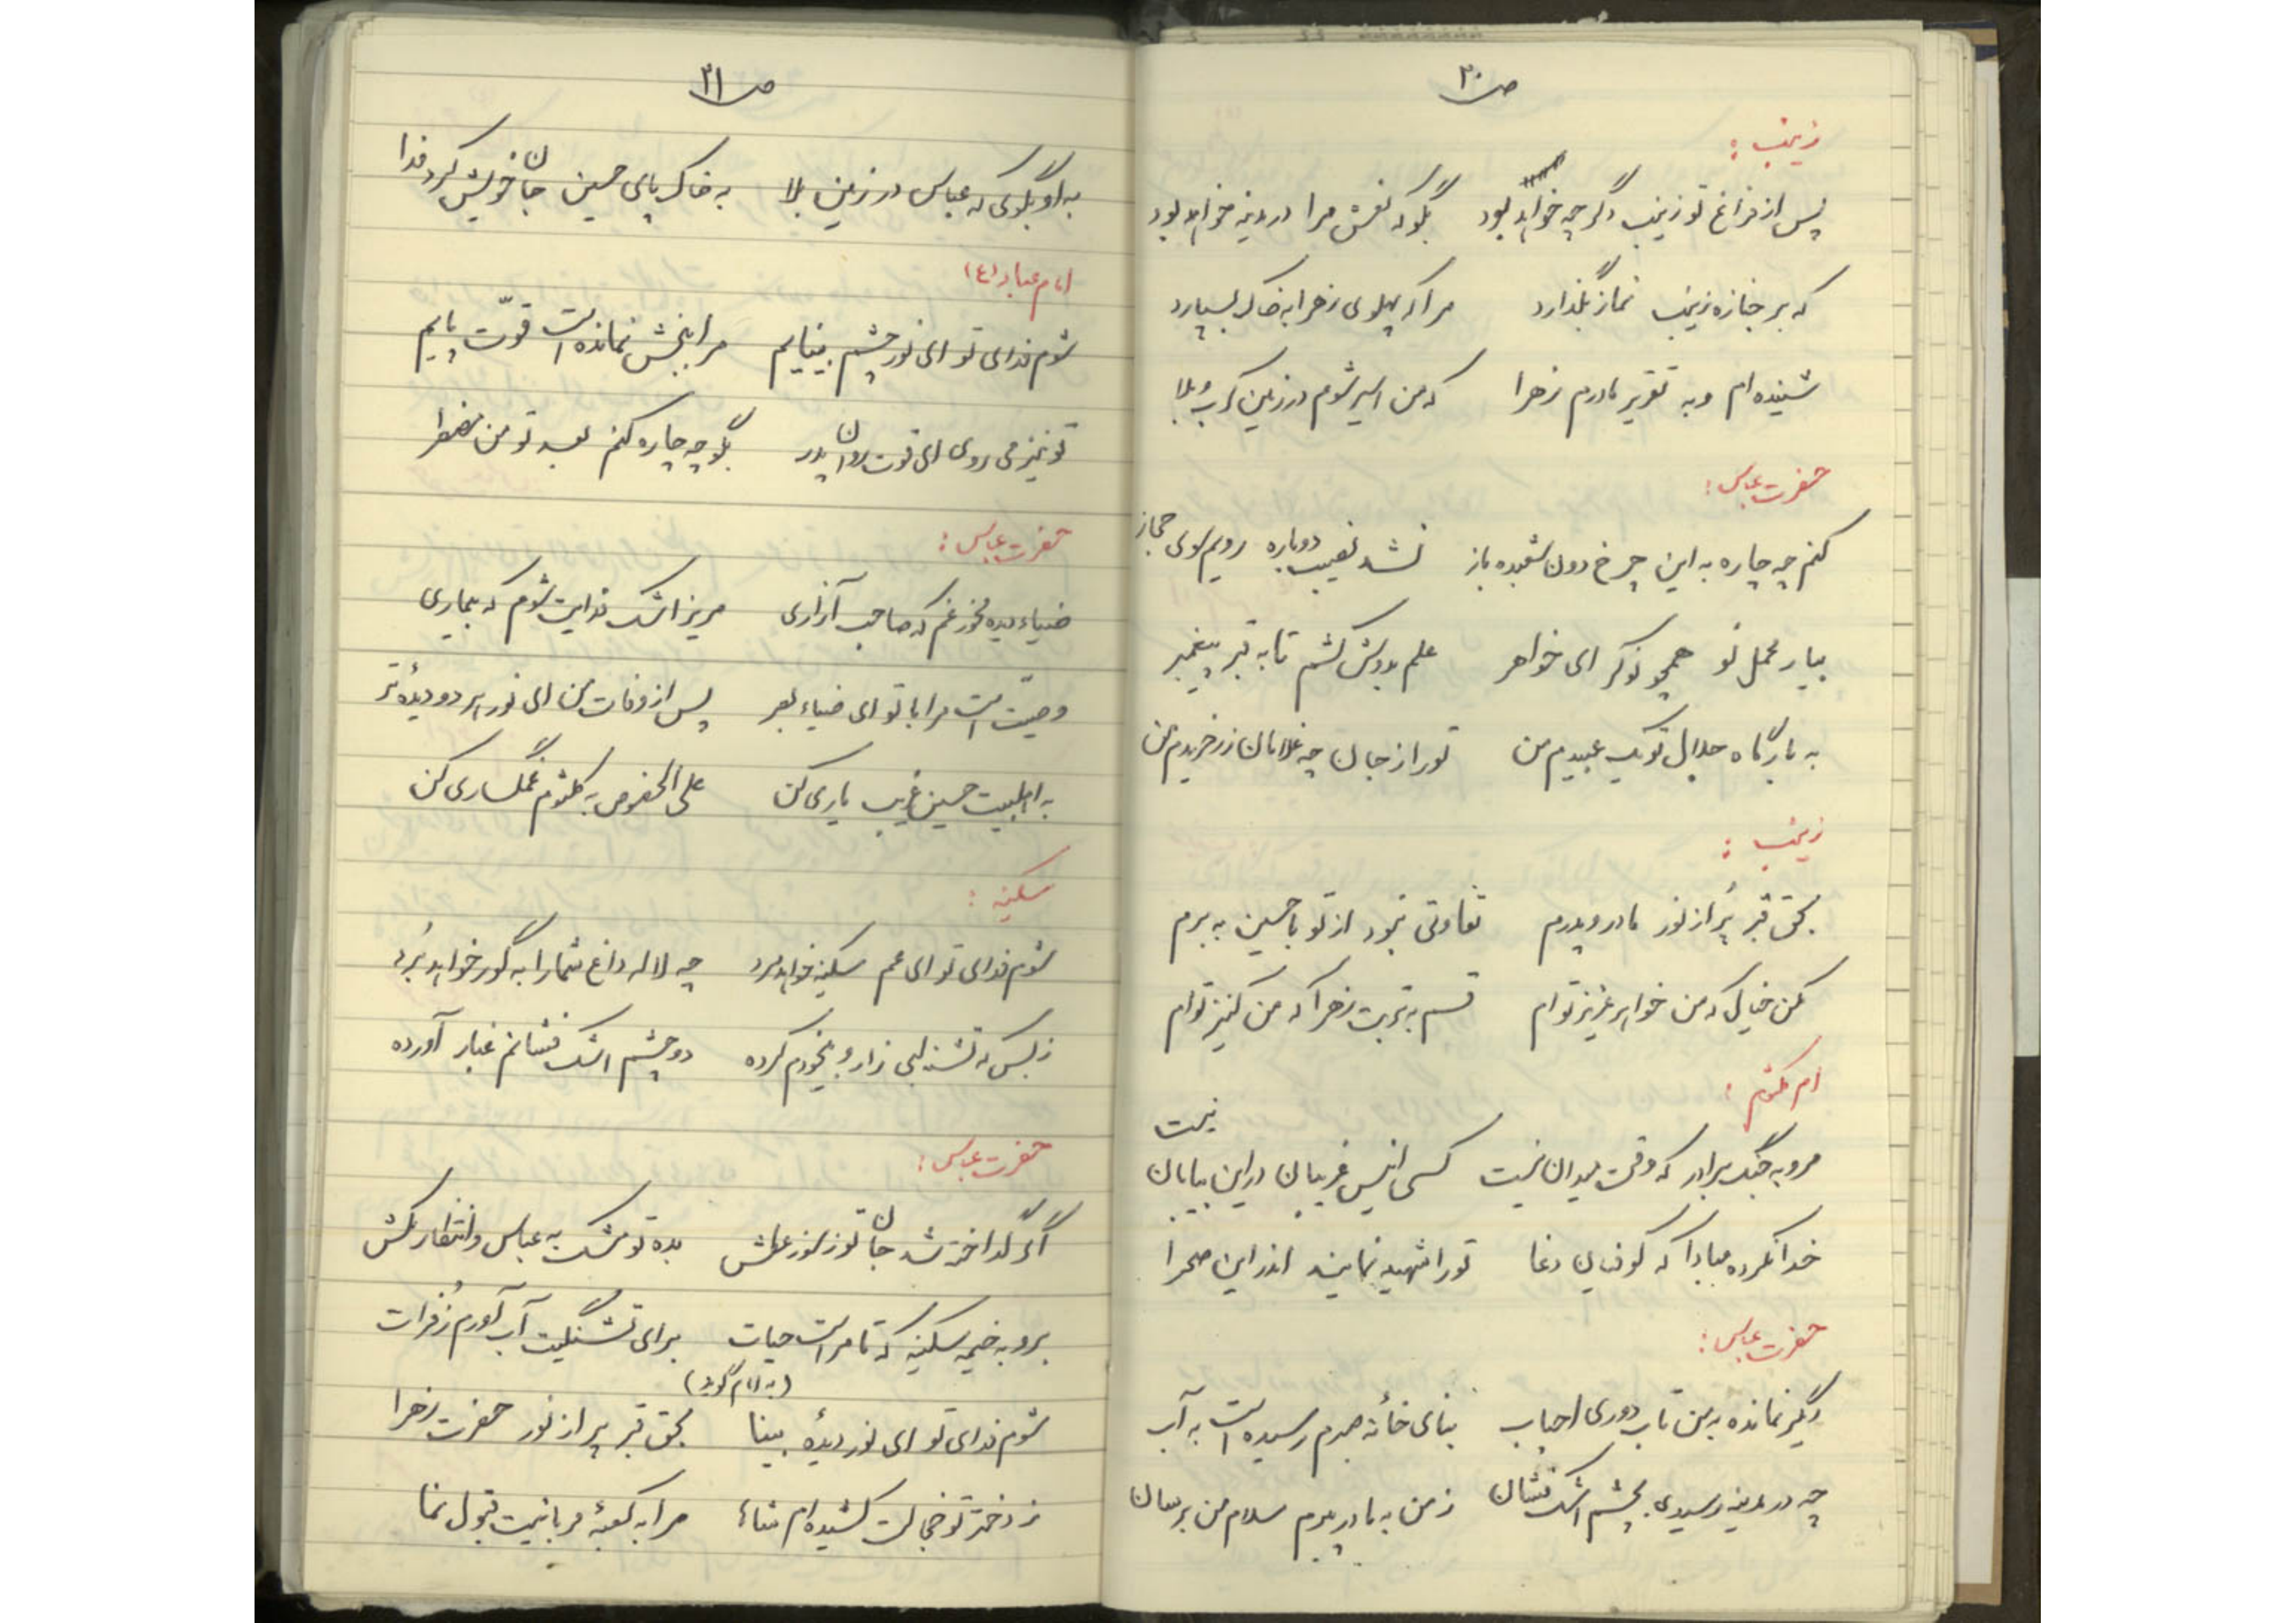 ص ۳۰
زینب :
پس از فراغ تو زینب دگر چه خواهد بود بگو که نعش مرا در مدینه خواهد بود
که بر جنازه زینب نماز بگذارد مرا که پهلوی زهرا به خاک بسپارد
شنیده ام و به تقریر مادرم زهرا که من اسیر شوم در زمین کرب و بلا
حضرت عباس :
کنم چه چاره به این چرخ دون شعبده باز نشد نصیب دوباره رویم سوی حجاز
بپای محمل تو همچو نوکر ای خواهر علم بدوش کشم تا به قبر پیغمبر
به بارگاه جلال تو یک عبیدم من تو را ز جان چه غلامان زر خریدم من
زینب :
بحق قبر پُر از نور مادر و پدرم تفاوتی نبود از تو با حسین به برم
مکن خیال که من خواهر عزیز توام قسم به تربت زهرا که من کنیز توام
ام کلثوم :
مرو به جنگ برادر که وقت میدان نیست کسی انیس غریبان در این بیابان نیست
خدا نکرده مبادا که کوفیان دغا تو را شهید نمایند اندر این صحرا
حضرت عباس :
دگر نمانده به من تاب دوری احباب بنای خانهٔ صبرم رسیده است به آب
چه در مدینه رسیدی بچشم اشک فشان ز من به مادر پیرم سلام من برسان
ص ۳۱
به او بگوی که عباس در زمین بلا به خاک پای حسین جان خویش کرد فدا
امام عباد (ع)
شوم فدای تو ای نور چشم بینایم مرا ببخش نمانده است قوّت پایم
تو نیز می روی ای قوت روان پدر بگو چه چاره کنم بعد تو من مضطر
حضرت عباس :
ضیاء دیده مخور غم که صاحب آزاری مریز اشک فدایت شوم که بیماری
وصیّت است مرا با تو ای ضیاء بصر پس از وفات من ای نور هر دو دیدهٔ تر
به اهلبیت حسین غریب یاری کن علی الخصوص به کلثوم غمگساری کن
سکینه :
شوم فدای تو ای عم سکینه خواهد مرد چه لاله داغ شما را به گور خواهد بُرد
ز بس که تشنه لبی زار و بیخودم کرده دو چشم اشک فشانم غبار آورده
حضرت عباس :
اگر گداخته شد جان تو ز سوز عطش بده تو مشک به عباس و انتظار بکش
برو به خیمه سکینه که تا مراست حیات برای تشنگیت آب آورم ز فُرات
(به امام گوید)
شوم فدای تو ای نور دیدهٔ بینا بحق قبر پر از نور حضرت زهرا
ز دختر تو خجالت کشیده ام شاها مرا به کعبهٔ قربانیت قبول نما